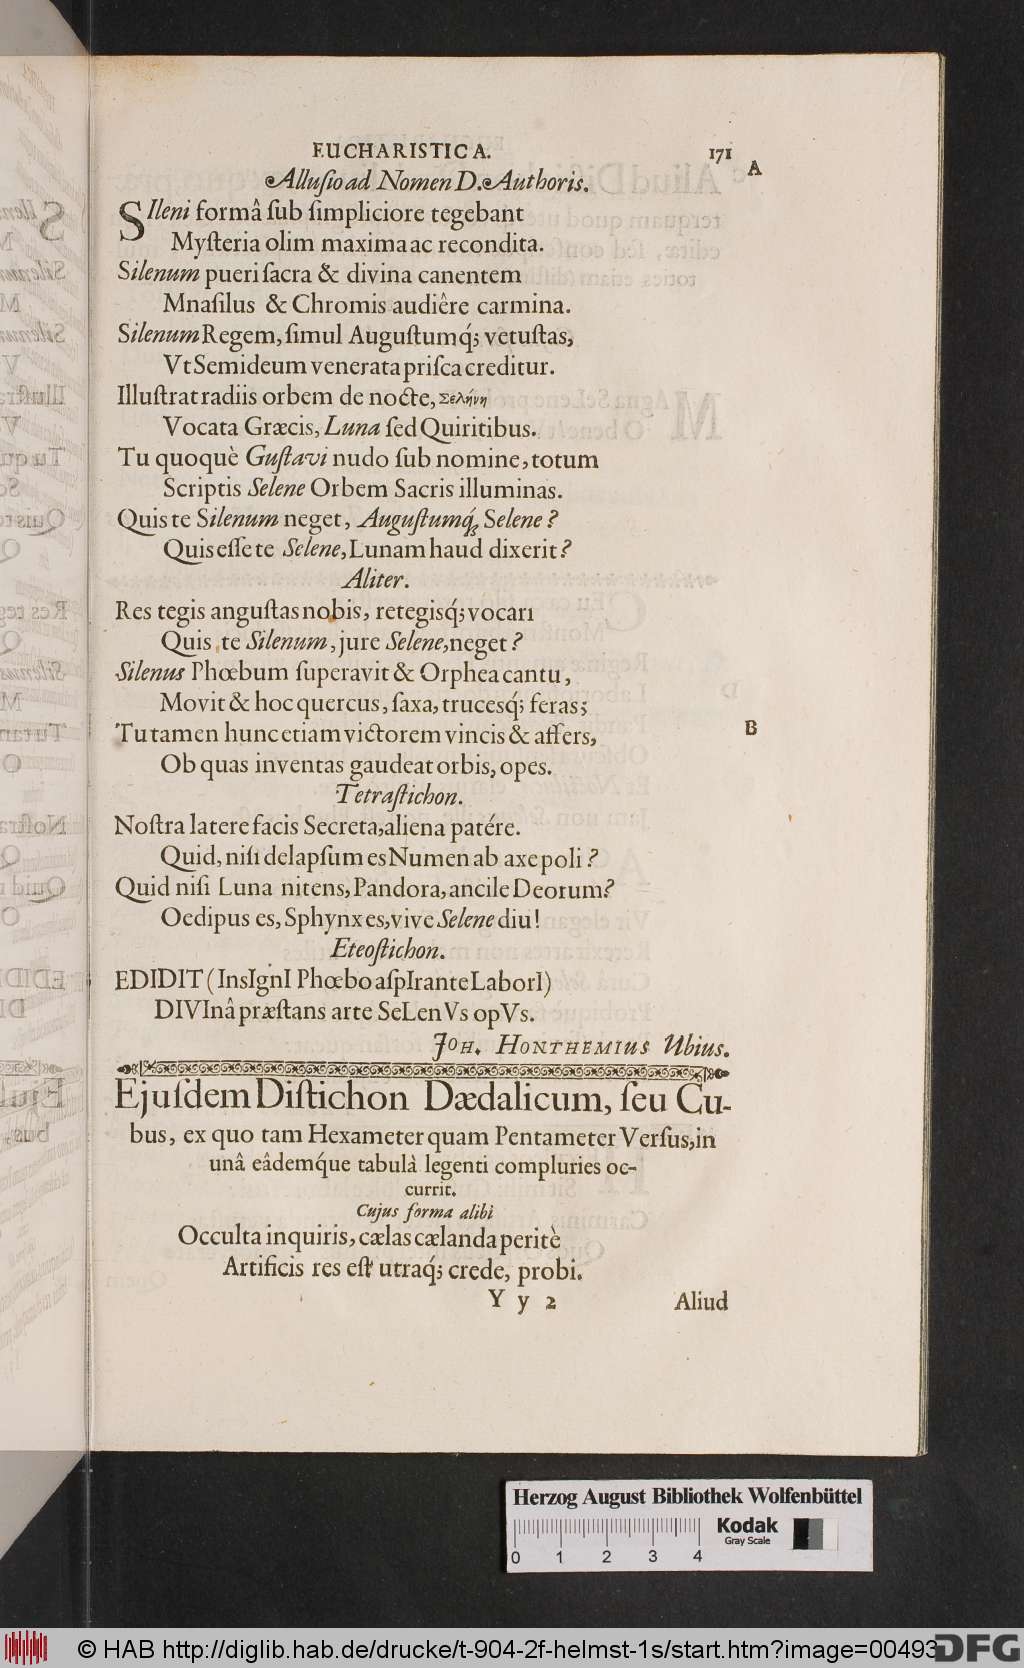 EUCHARISTICA. 171
A
Allusio ad Nomen D. Authoris.
SIleni formâ ſub ſimpliciore tegebant
Myſteria olim maxima ac recondita.
Silenum pueri ſacra & divina canentem
Mnaſilus & Chromis audiêre carmina.
Silenum Regem, ſimul Auguſtumq́; vetuſtas,
Vt Semideum venerata priſca creditur.
Illuſtrat radiis orbem de nocte, Σελήνη
Vocata Græcis, Luna ſed Quiritibus.
Tu quoquè Guſtavi nudo ſub nomine, totum
Scriptis Selene Orbem Sacris illuminas.
Quis te Silenum neget, Auguſtumq́; Selene?
Quis eſſe te Selene, Lunam haud dixerit?
Aliter.
Res tegis anguſtas nobis, retegisq́; vocari
Quis te Silenum, jure Selene, neget?
Silenus Phœbum ſuperavit & Orphea cantu,
Movit & hoc quercus, ſaxa, trucesq́; feras;
Tu tamen hunc etiam victorem vincis & affers,
B
Ob quas inventas gaudeat orbis, opes.
Tetraſtichon.
Noſtra latere facis Secreta, aliena patére.
Quid, niſi delapſum es Numen ab axe poli?
Quid niſi Luna nitens, Pandora, ancile Deorum?
Oedipus es, Sphynx es, vive Selene diu!
Eteoſtichon.
EDIDIT (InsIgnI Phœbo aſpIrante LaborI)
DIVInâ præſtans arte SeLenVs opVs.
JOH. HONTHEMIUS Ubius.
Ejuſdem Diſtichon Dædalicum, ſeu Cu-
bus, ex quo tam Hexameter quam Pentameter Verſus, in
unâ eâdemq́ue tabulà legenti compluries oc-
currit.
Cujus forma alibi
Occulta inquiris, cælas cælanda peritè
Artificis res eſt utraq́; crede, probi.
Y y 2
Aliud
Herzog August Bibliothek Wolfenbüttel
Kodak
Gray Scale
0 1 2 3 4
© HAB http://diglib.hab.de/drucke/t-904-2f-helmst-1s/start.htm?image=00493
DFG